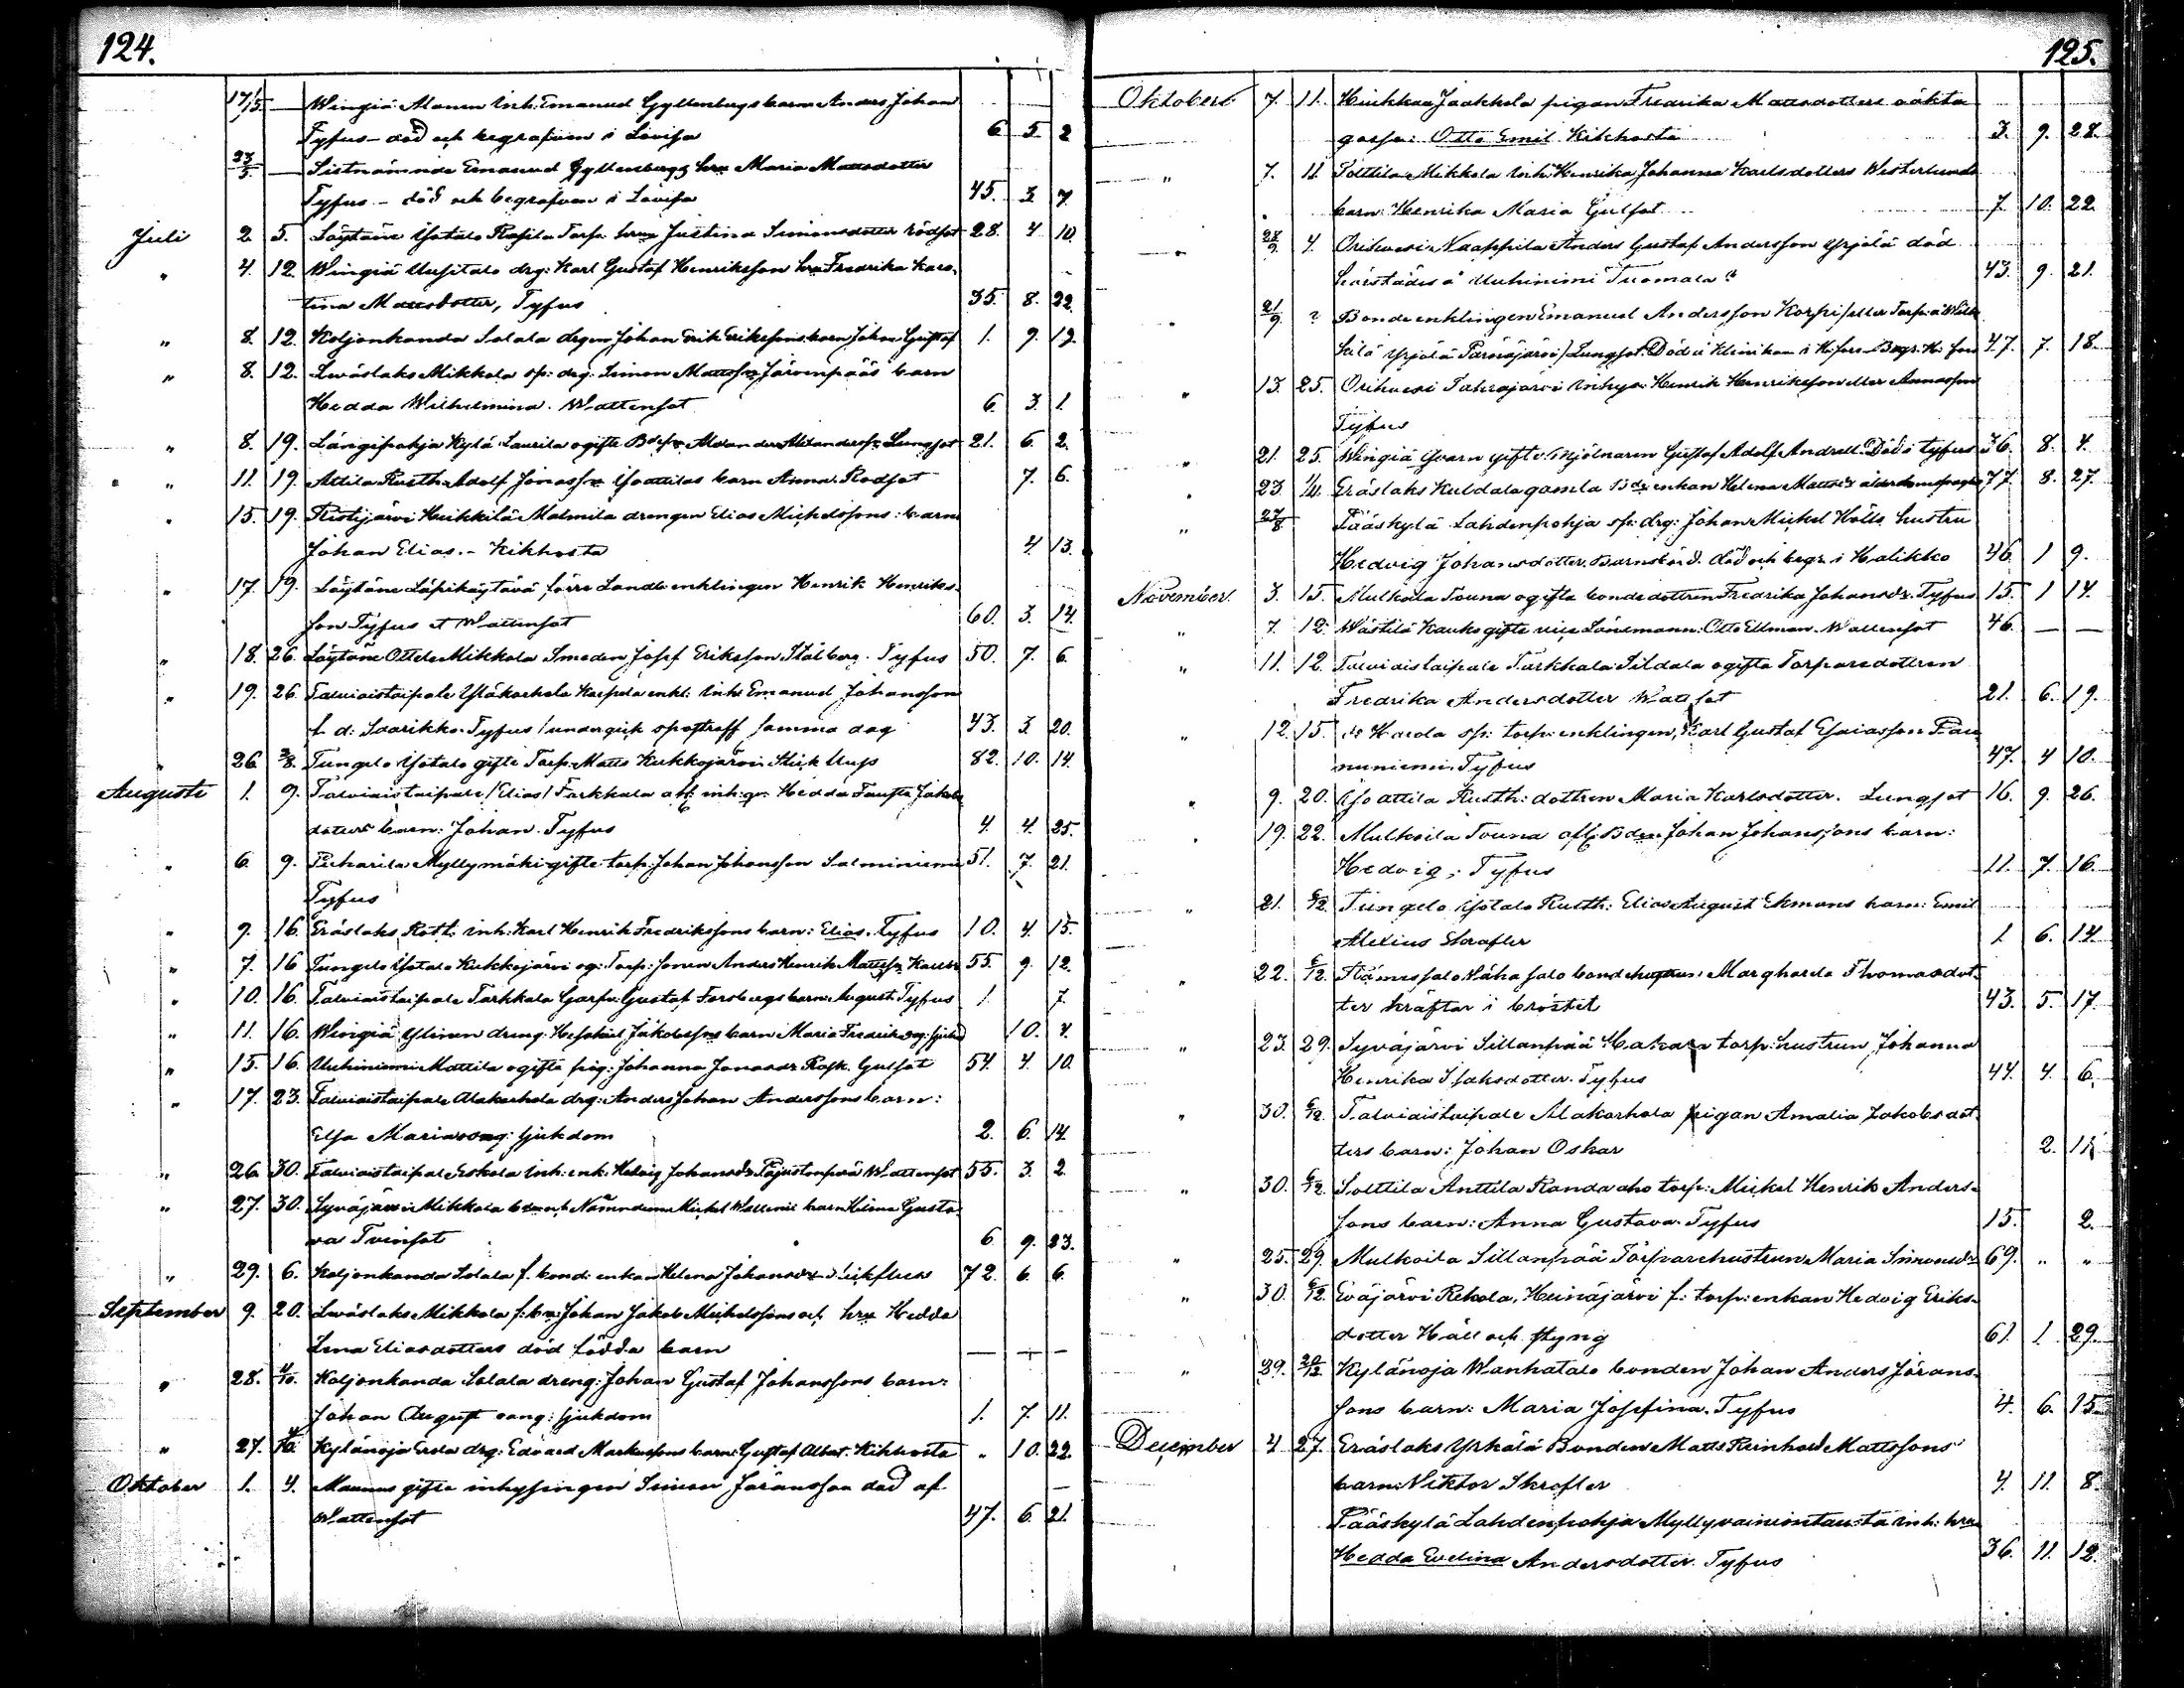 124.
17/5 — Wingiä Manen inh: Emanuel Gyllenbergs barn Anders Johan
Tyfus - död och begrafven i Lovisa 6 5 2
23/5 — Sistnämnde Emanuel Gyllenbergs hru Maria Mattsdotter
Tyfus - död och begrafven i Lovisa 45. 3 7
Juli 2 5. Löytäne Isotalo Torp. hru Justina Simonsdotter rödsot 28. 4 10
" 4. 12 Wingiä Uusitalo drg: Karl Gustaf Henriksson hru Fredrika Karo-
lina Mattsdotter, Tyfus 35. 8. 22.
" 8. 12. Koljonkanda Salala drgen Johan Erik Erikssons barn Johan Gustaf 1. 9. 19.
" 8. 12. Liväslaks Mikkola sp: drg: Simon Mattss: Järvenpääs barn
Hedda Wilhelmina. Wattensot 6. 3. 1.
" 8. 19. Längipohja Kylä Laurila ogifte Alexander Alexanderss: Lungsot 21. 6. 2.
" 11. 19. Attila Rusth: Adolf Jonass: Isoattilas barn Anna. Rödsot 7. 6.
" 15. 19. Ristijärvi Heikkilä Malmila drengen Elias Michelssons: barn
Johan Elias. - Kikhosta 4. 13.
" 17. 19. Löytäne Läpikäytävä förre Landb: enklingen Henrik Henriks-
son Tyfus et Wattensot 60. 3. 14.
" 18. 26. Löytäne Ottela Mikkola Smeden Josef Eriksson Stålberg. Tyfus 50. 7. 6.
" 19. 26. Talviaistaipale Yläkarhola Karpela enkl: inh: Emanuel Johansson
f. d. Saarikko. Tyfus / undergick spöstraff samma dag 43. 3. 20.
" 26 2/8. Tungelo Isotalo gifte Torp: Matts Kukkojärvi 82. 10. 14.
Augusti 1. 9. Talviaistaipale / Elias / Tarkkala afl: inh: Hedda Jakobs
dotters barn: Johan. Tyfus 4. 4. 25.
" 6. 9. Picharila Myllymäki gifte torp: Johan Johansson Salminiemi 51. 7. 21.
Tyfus
" 9. 16. Eräslaks Rott: inh: Karl Henrik Fredrikssons barn: Elias. Tyfus 10. 4. 15.
" 7. 16 Tungelo Isotalo Kukkojärvi og: Torp: sonen Anders Henrik Mattss: 55. 9. 12.
" 10. 16. Talviaistaipale Tarkkala Gustaf Forsbergs barn: August. Tyfus 1. 7.
" 11. 16. Wingiä Ylinen dreng: Hesekiel Jakobssons barn Maria Fredrika 10. 4.
" 15. 16. Uuhiniemi Mattila ogifta pig: Johanna Jonasdr Rask. Gulsot 54. 4. 10.
" 17. 23. Talviaistaipale Alakarhola drg: Anders Johan Anderssons barn:
Elsa Maria sjukdom 2. 6. 14.
" 26. 30. Talviaistaipale Eskola inh: enk: Hedvig Johansdr Wattensot 55. 3. 2.
" 27. 30. Syväjärvi Mikkola Michel barn Helena Gusta-
va Tvinsot 6 9. 23.
" 29. 6. Koljonkanda Salala f. bond: enkan Helena Johansdr 72. 6. 6.
September 9. 20. Liväslaks Mikkola f: Johan Jakob Michelssons och hru Hedda
Lena Eliasdotters död födda barn — — —
" 28. 4/10. Koljonkanda Salala dreng: Johan Gustaf Johanssons barn:
Johan August sjukdom 1. 7. 11.
" 27. 4/10. Kylänoja Erola drg: Edvard Markussons barn: Gustaf Albert. Kikhosta " 10. 22.
Oktober 1. 4. Maunus gifte inhysingen Simon Jöransson död af —
Wattensot 47. 6. 21.
125.
Oktober 7. 11. Heikkaa Jaakkola pigan Fredrika Mattsdotters oäkta
gosse: Otto Emil Kikhosta 3. 9. 28.
" 7. 11. Polttila Mikkola inh: Henrika Johanna Karlsdotters Westerlunds
barn: Henrika Maria Gulsot 7. 10. 22.
" 28/9. 4. Orihvesi Naappila Anders Gustaf Andersson Yrjölä död
härstädes å Uuhinimi Tuomala 43. 9. 21.
" 21/9. ? Bonde enklingen Emanuel Andersson Korpi
kilä Yrjölä Lungsot. Död å Kliniken i H:fors 47. 7. 18.
" 13. 25. Orihvesi inhys: Henrik Henriksson eller
Tyfus
" 21. 25. Wingiä Qvarn gifte Mjölnaren Gustaf Adolf Död i tyfus 36. 8. 4.
" 23. 1/11. Eräslaks Kuldala gamla enkan Helena Mattsdr 77. 8. 27.
" 27/8 Pääskylä Lahdenpohja sp: drg: Johan Mickel hustru
Hedvig Johansdotter. Barnsbörd. död och begr. i Halikko 46. 1 9.
November 3. 15. Mulkoila Touna ogifta bondedottren Fredrika Johansdr. Tyfus 15. 1 14.
" 7. 12. Västilä Kauko gifte vice Länsmann: Otto Ellman. Wattensot 46. — —
" 11. 12. Talviaistaipale Tarkkala ogifta Torparedottren
Fredrika Andersdotter Wattsot 21. 6. 19.
" 12. 15. sp: torp: enklingen, Karl Gustaf Esaiasson
Tyfus 47. 4 10.
" 9. 20. Isoattila Rusth: dottren Maria Karlsdotter. Lungsot 16. 9. 26.
" 19. 22. Mulkoila Touna Johan Johanssons barn:
Hedvig, Tyfus 11. 7. 16.
" 21. 6/12. Tungelo Isotalo Rusth: Elias August Ekmans barn: Emil
Alexius Skrofler 1. 6. 14.
" 22. 6/12. bondehustrun Margharela Thomasdot-
ter kräftar i bröstet 43. 5. 17.
" 23. 29. Syväjärvi Sillanpää torp: hustrun Johanna
Henrika Isaksdotter. Tyfus 44. 4. 6.
" 30. 6/12. Talviaistaipale Alakarhola pigan Amalia Jakobsdot-
ters barn: Johan Oskar 2.
" 30. 6/12. Solttila Anttila Kandaaho torp: Mickel Henrik Anders-
sons barn: Anna Gustava. Tyfus 15. 2.
" 25. 29. Mulkoila Sillanpää Torparehustrun Maria Simonsdr 69. " "
" 30. 6/12. Eväjärvi Rekola, Heinäjärvi f: torp: enkan Hedvig Eriks-
dotter Håll och styng 61. 1. 29.
" 29. 20/12. Kylänoja Wanhatalo bonden Johan Anders Jörans-
sons barn: Maria Josefina. Tyfus 4. 6. 15.
December 4 27. Eräslaks Yrkälä Bonden Matts Reinhold Mattssons
barn: Viktor Skrofler 4. 11. 8.
Pääskylä Lahdenpohja Myllyvainiontausta inh: hru
Hedda Evelina Andersdotter. Tyfus 36. 11. 12.